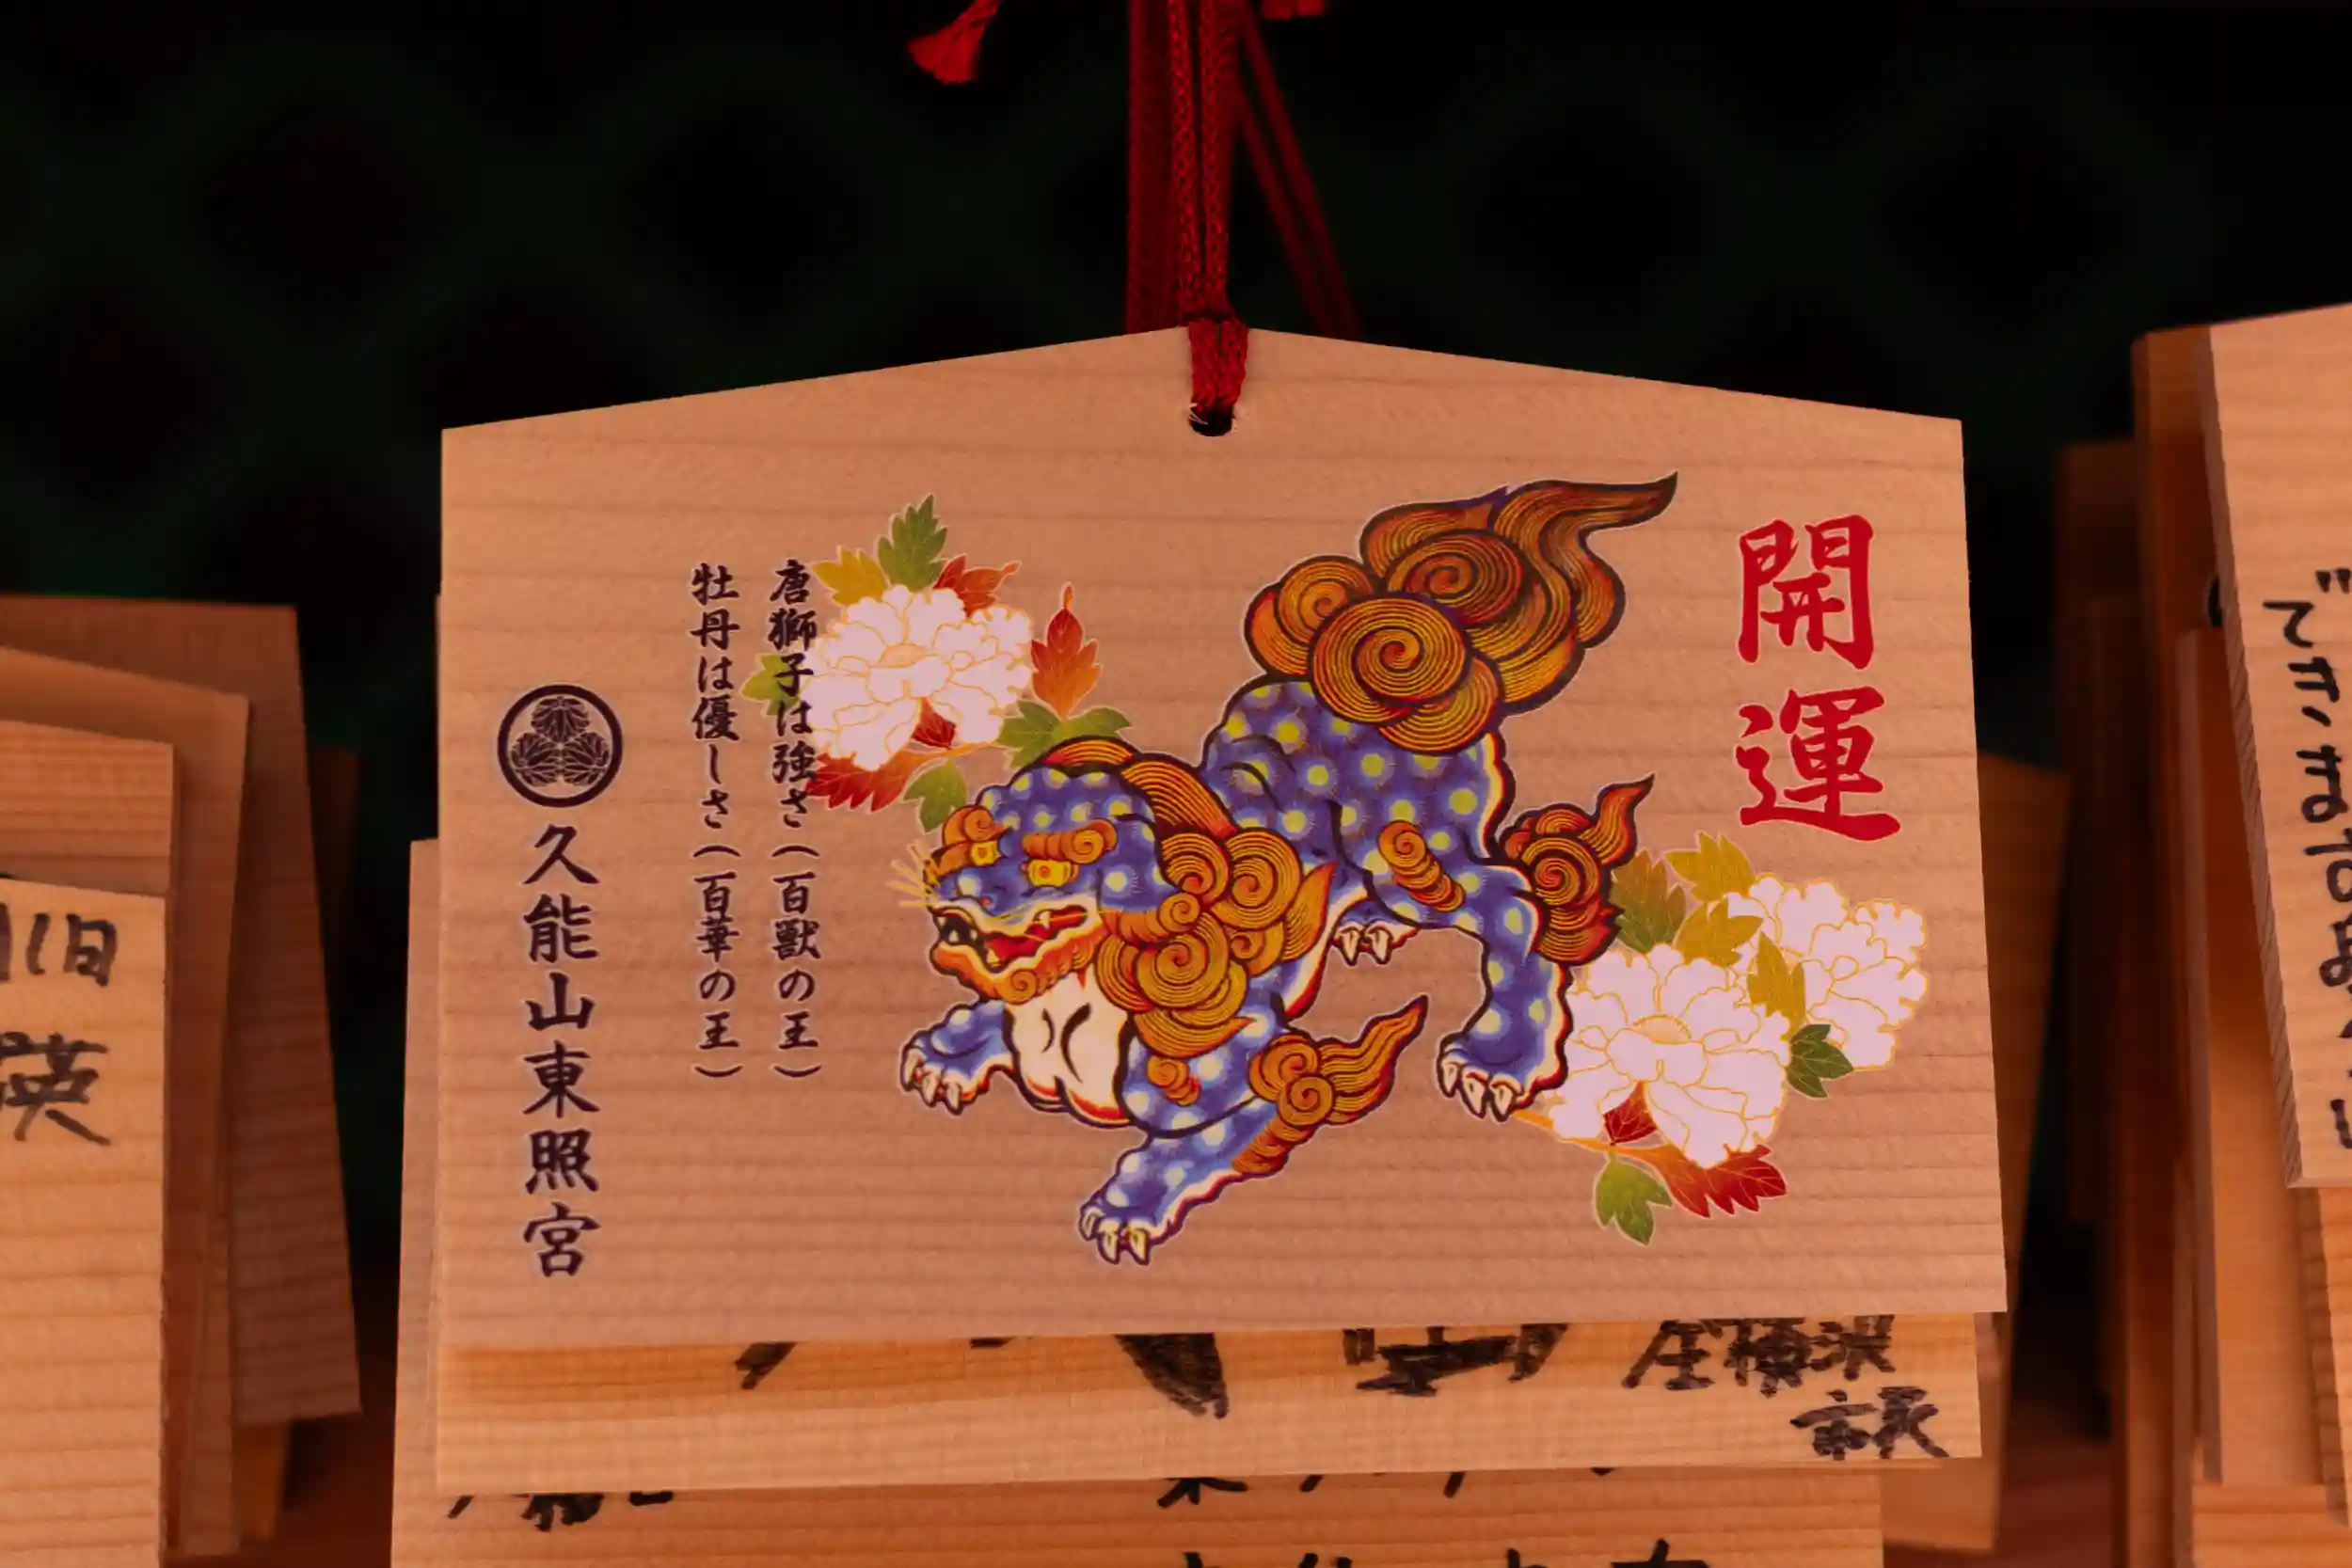 開運
唐獅子は強さ（百獣の王）
牡丹は優しさ（百華の王）
久能山東照宮
できます
英